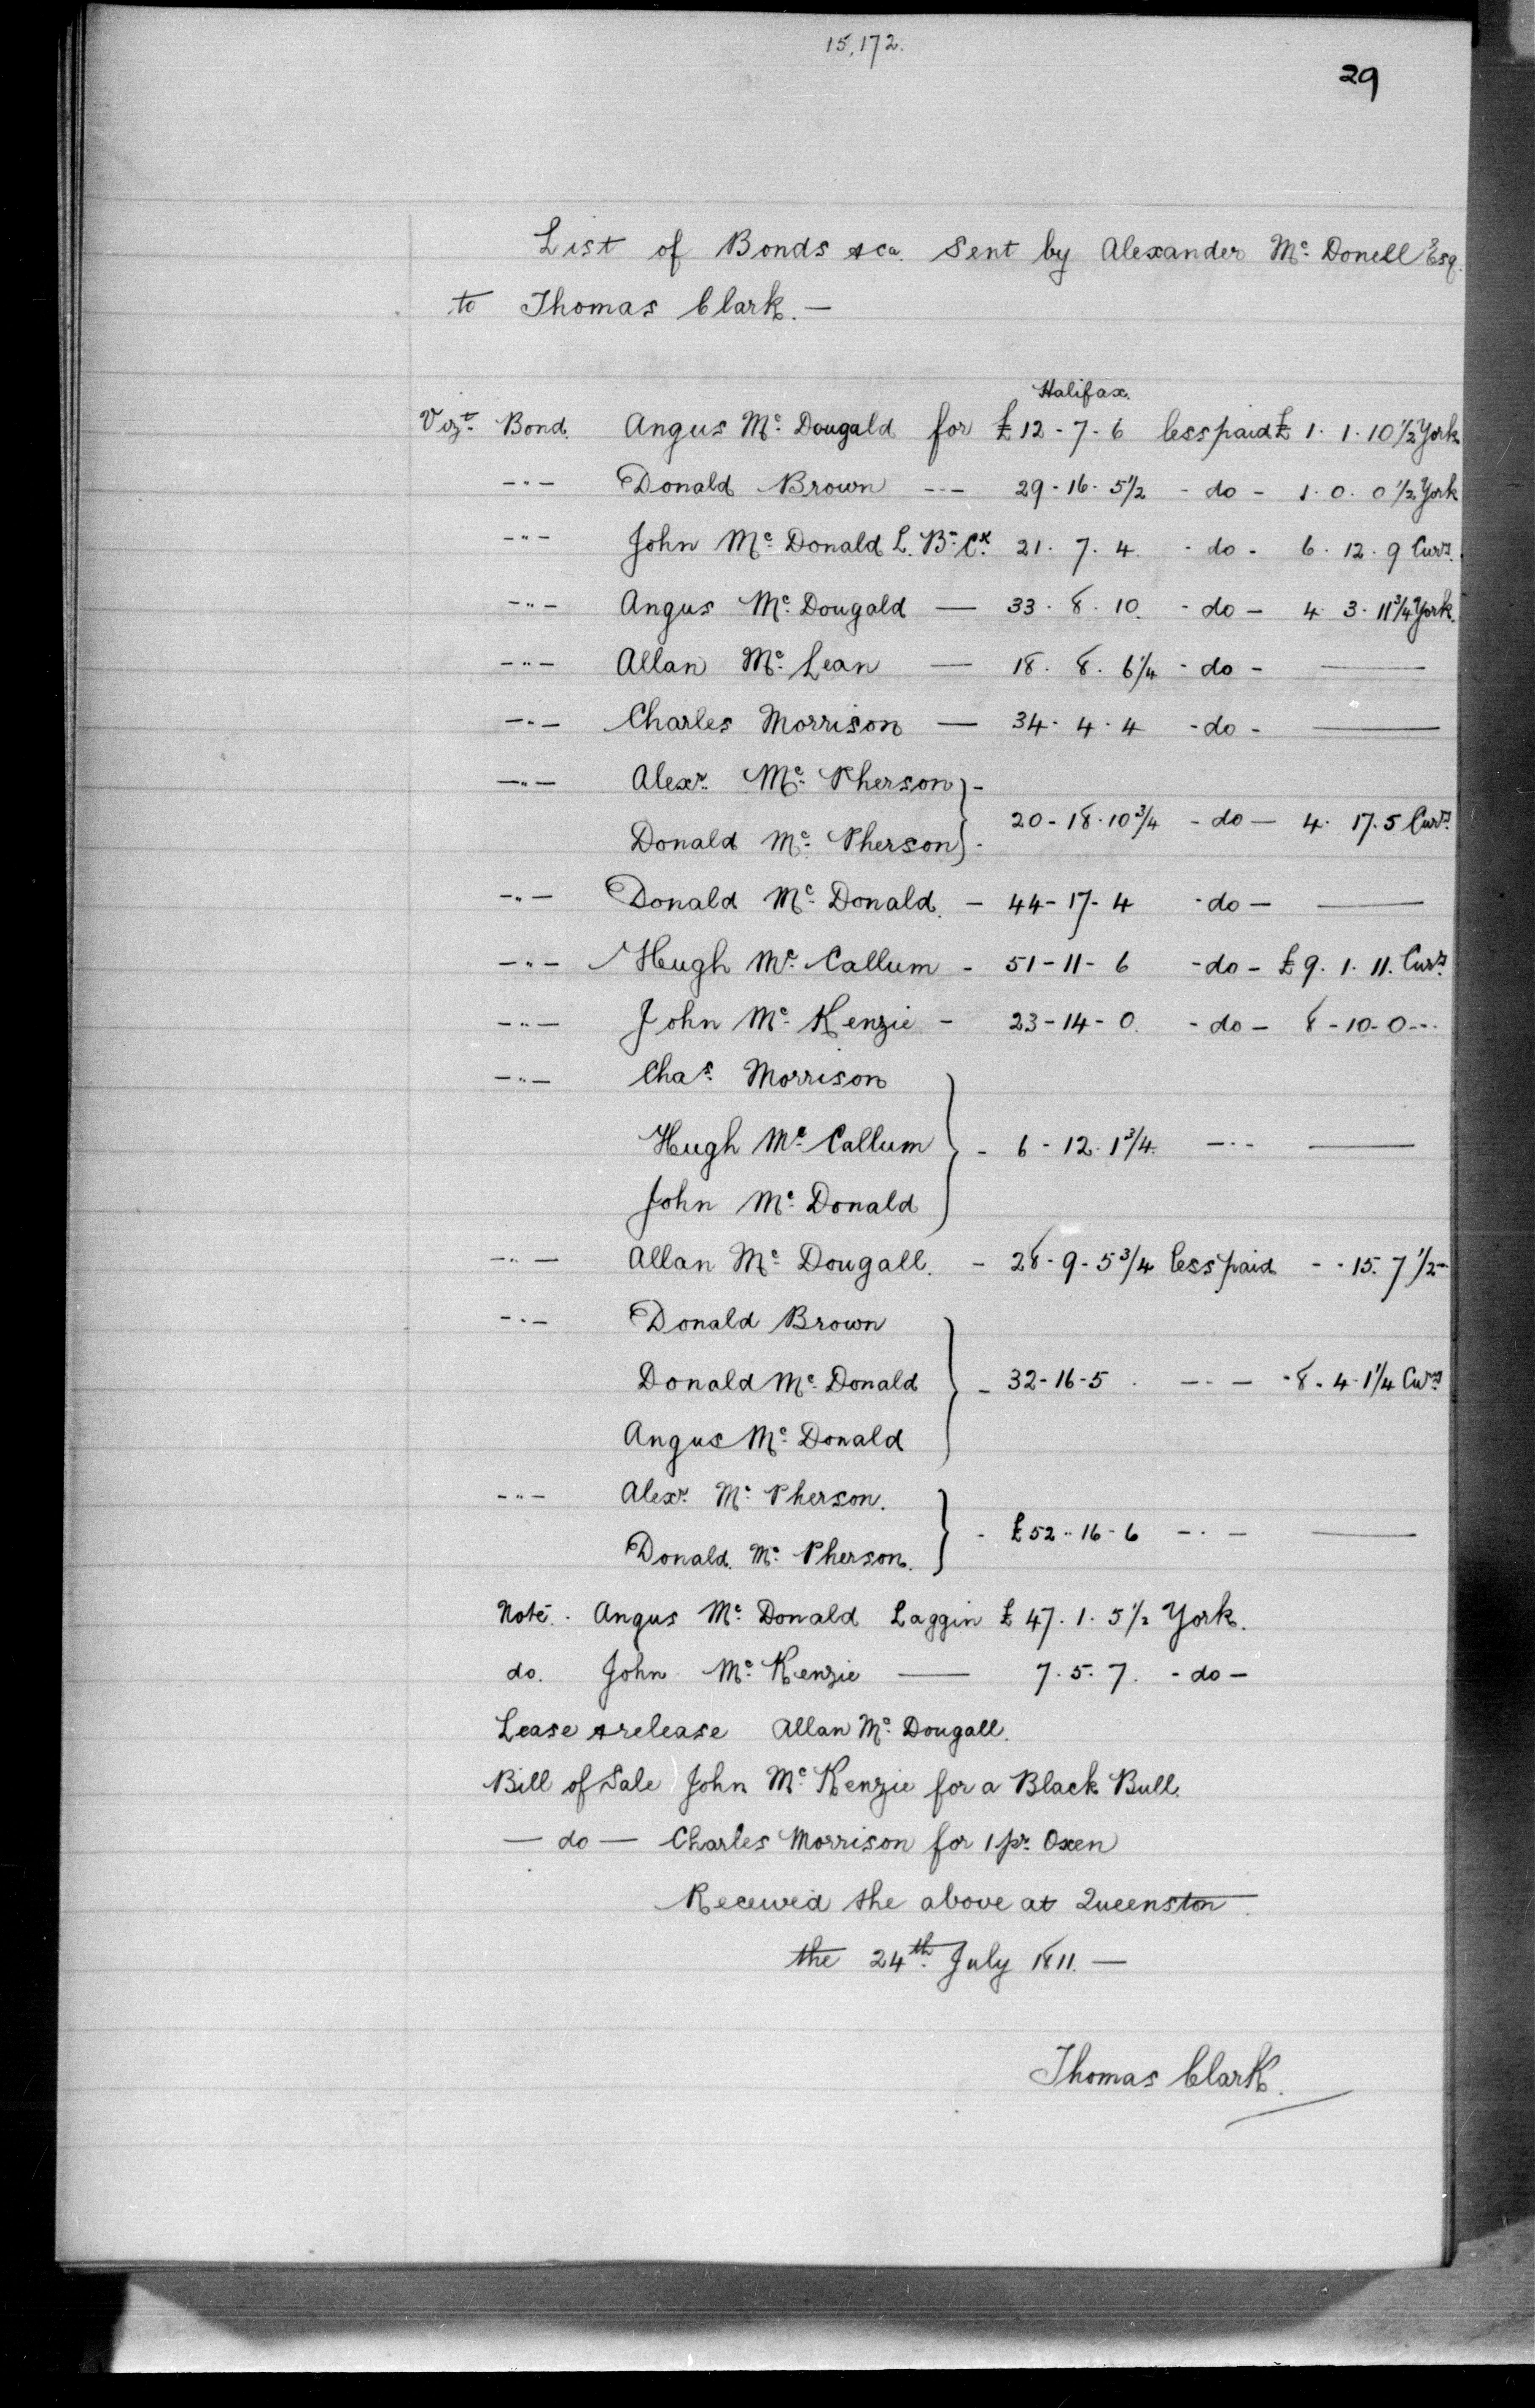 15,172.
29
List of Bonds &ca. Sent by Alexander Mc Donell Esq.
to Thomas Clark. —
Halifax.
Vizt. Bond. Angus Mc Dougald for £12-7-6 less paid £ 1. 1. 10 1/2 York
-"- Donald Brown --- 29-16-5 1/2 - do - 1. 0. 0 1/2 York
-"- John Mc Donald L. Bn. Ck. 21. 7. 4. - do - 6. 12. 9 Curcy.
-"- Angus Mc Dougald — 33. 8. 10. - do - 4. 3. 11 3/4 York.
-"- Allan Mc Lean — 18. 8. 6 1/4 - do - ——
-"- Charles Morrison — 34. 4. 4 - do - ——
-"- Alexr. Mc Pherson } -
20-18-10 3/4 - do — 4. 17. 5 Curcy.
Donald Mc Pherson } -
-"- Donald Mc Donald. - 44-17-4 - do — ——
-"- Hugh Mc Callum - 51-11-6 - do - £9. 1. 11. Curcy.
-"- John Mc Kenzie - 23-14-0. - do - 8-10-0--.
-"- Chas. Morrison
Hugh Mc Callum } - 6-12. 1 3/4. -"- ——
John Mc Donald
-"- Allan Mc Dougall. - 28-9-5 3/4 less paid - - 15. 7 1/2 -
-"- Donald Brown
Donald Mc Donald } - 32-16-5. -"- - 8. 4. 1 1/4 Curcy.
Angus Mc Donald
-"- Alexr. Mc Pherson.
} - £52-16-6 -"- ——
Donald. Mc Pherson.
Note. Angus Mc Donald Laggin £47. 1. 5 1/2 York.
do. John Mc Kenzie — 7. 5. 7. - do -
Lease & release Allan Mc Dougall.
Bill of Sale John Mc Kenzie for a Black Bull.
— do — Charles Morrison for 1 pr. Oxen
Received the above at Queenston.
the 24th. July 1811. —
Thomas Clark.